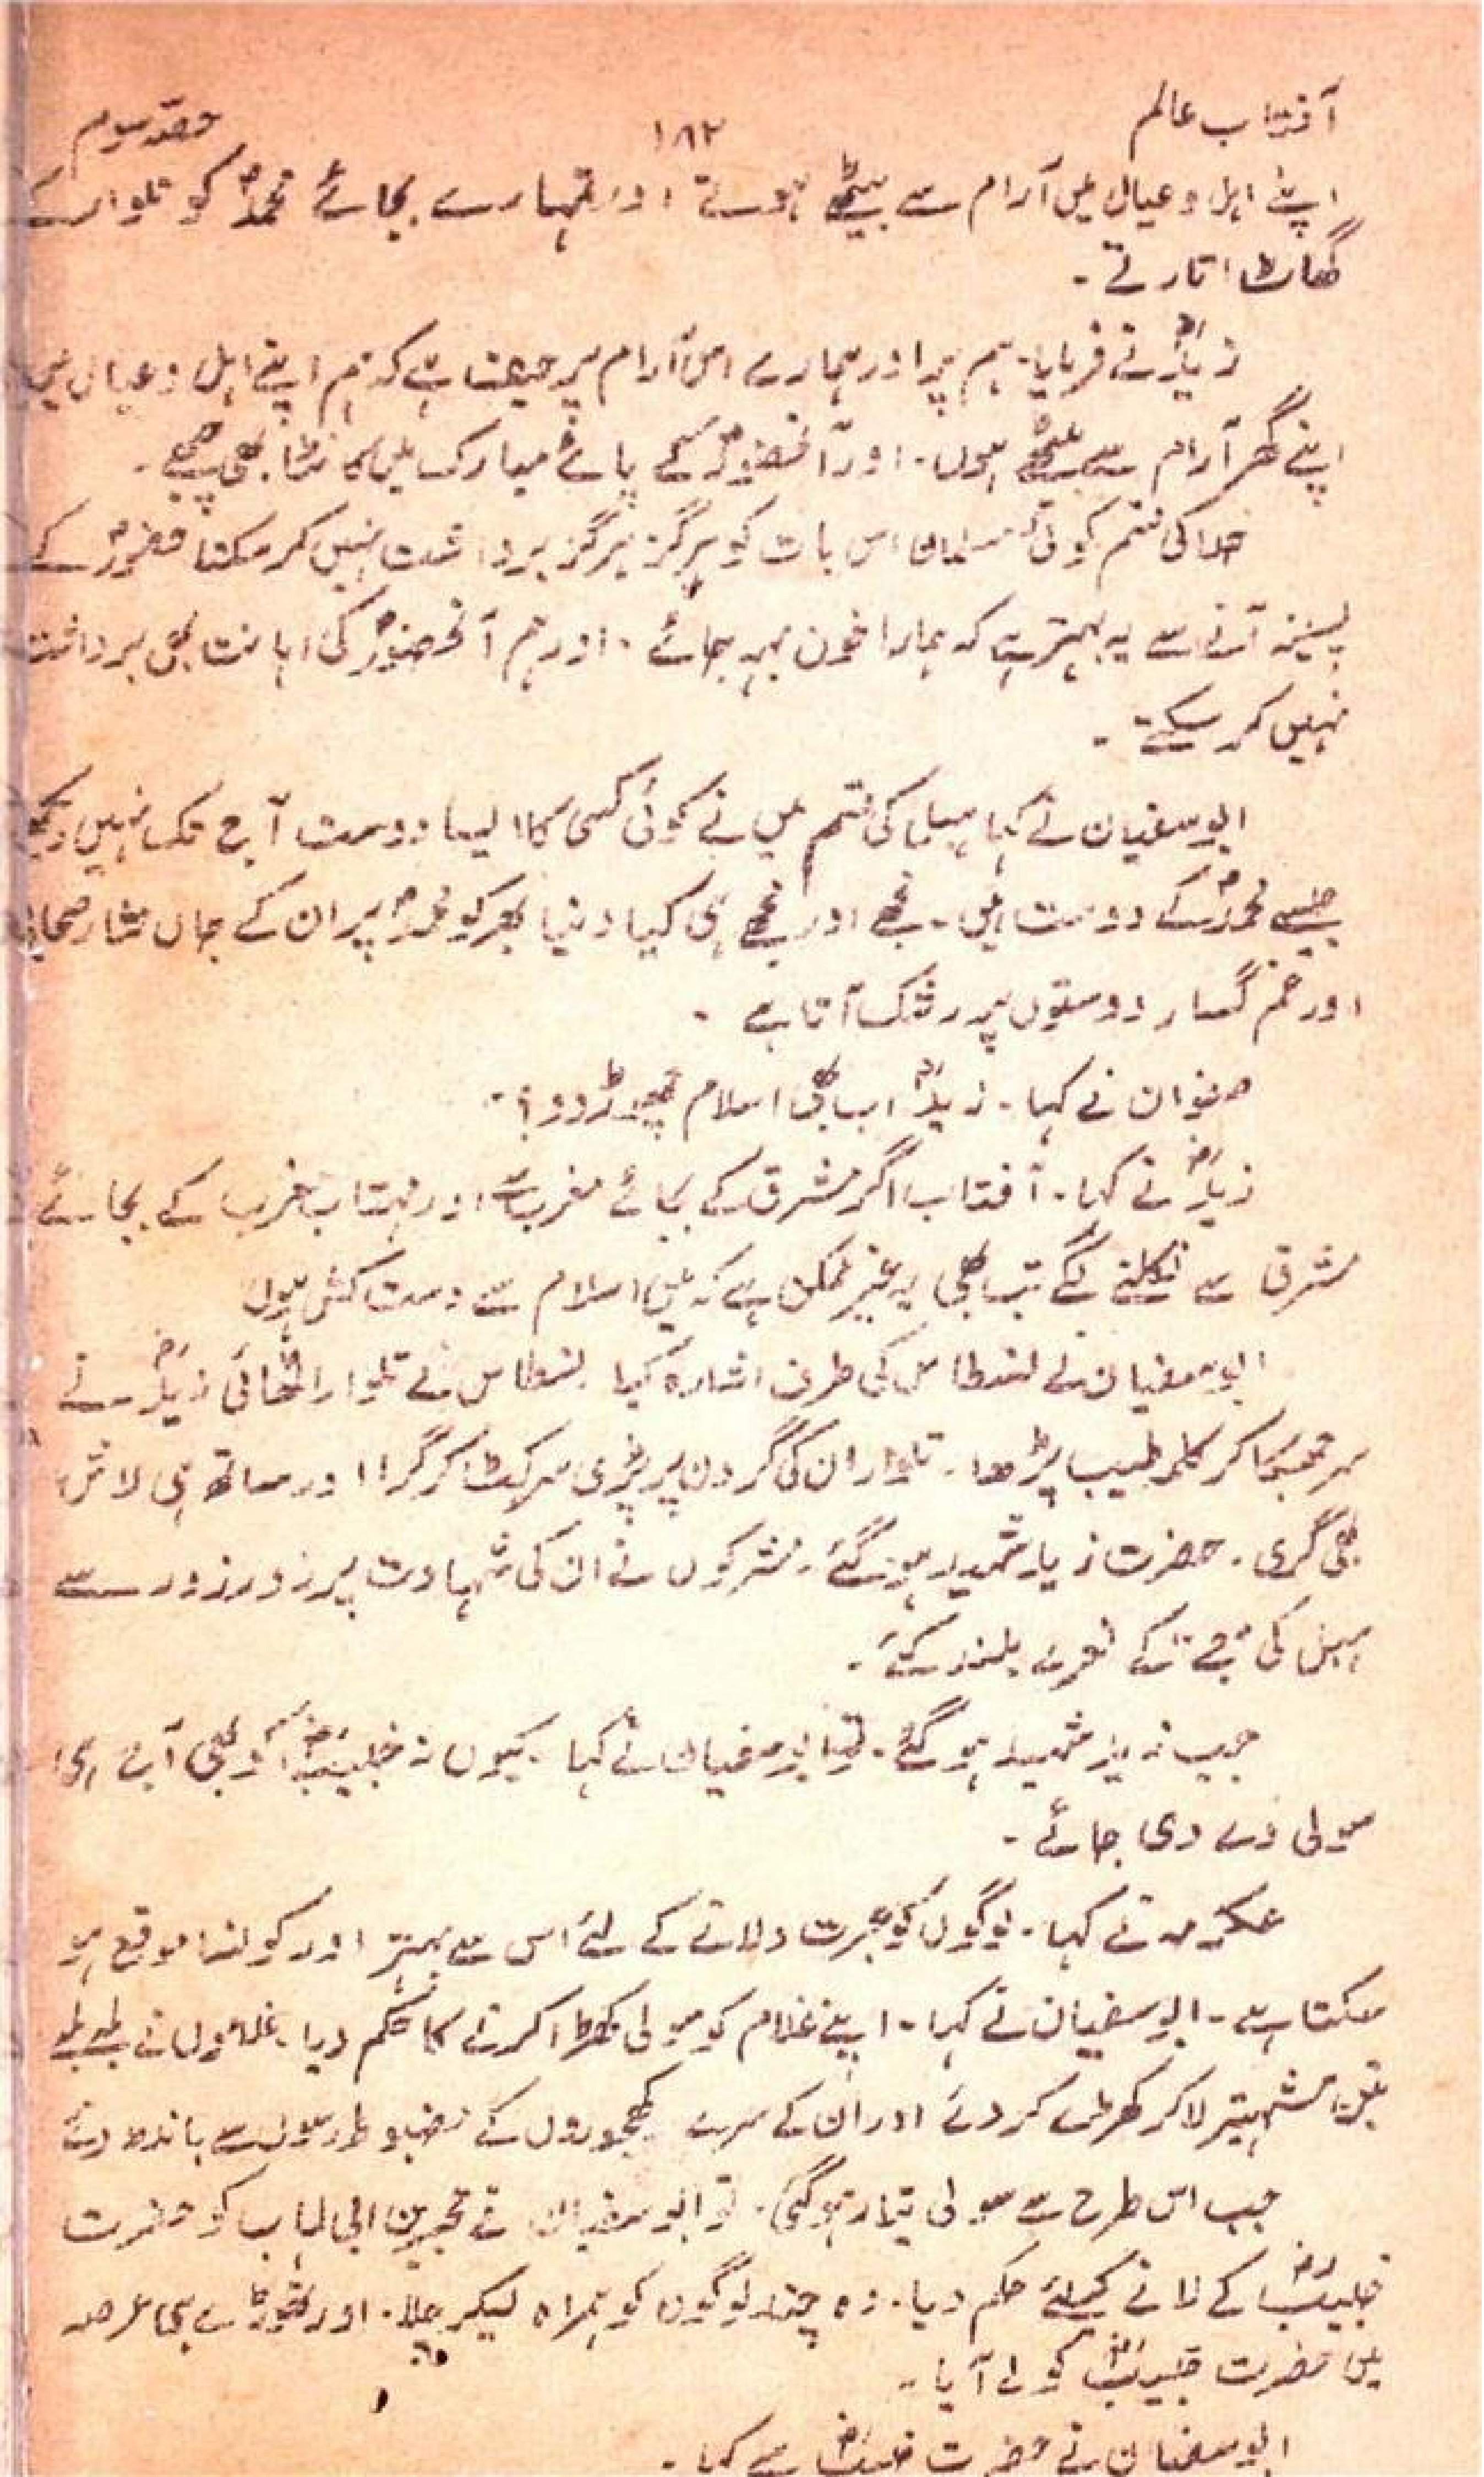 آفتاب عالم ۱۸۲ حصہ سوم
اپنے اہل و عیال میں آرام سے بیٹھے ہوتے اور تمہارے بجائے محمدؐ کو تلوار کے
گھاٹ اتارتے ۔
زیدؓ نے فرمایا۔ ہم پر اور ہمارے اس آرام پر حیف ہے کہ ہم اپنے اہل و عیال میں
اپنے گھر آرام سے بیٹھے ہوں۔ اور آنحضورؐ کے پائے مبارک میں کانٹا بھی چبھے۔
خدا کی قسم کوئی مسلمان اس بات کو ہرگز ہرگز برداشت نہیں کر سکتا حضورؐ کے
پسینہ آنے سے یہ بہتر ہے کہ ہمارا خون بہہ جائے ۔ اور ہم آنحضورؐ کی اہانت بھی برداشت
نہیں کر سکتے ۔
ابو سفیان نے کہا ہبل کی قسم میں نے کوئی کسی کا ایسا دوست آج تک نہیں دیکھا
جیسے محمدؐ کے دوست ہیں۔ مجھے اور مجھے ہی کیا دنیا بھر کو محمدؐ پر ان کے جاں نثار صحابی
اور غم گسار دوستوں پر رشک آتا ہے ۔
صفوان نے کہا ۔ زیدؓ اب بھی اسلام چھوڑ دو ؟ ۔
زیدؓ نے کہا ۔ آفتاب اگر مشرق کے بجائے مغرب سے اور مہتاب مغرب کے بجائے
مشرق سے نکلنے لگے تب بھی یہ غیر ممکن ہے کہ میں اسلام سے دست کش ہوں
ابو سفیان نے نسطاس کی طرف اشارہ کیا نسطاس نے تلوار اٹھائی زیدؓ نے
سر جھکا کر کلمہ طیب پڑھا۔ تلوار ان کی گردن پر پڑی سر کٹ کر گرا اور ساتھ ہی لاش
بھی گری ۔ حضرت زید شہید ہو گئے ۔ مشرکوں نے ان کی شہادت پر زور زور سے
ہبل کی جے کے نعرے بلند کئے ۔
جب زیدؓ شہید ہو گئے ۔ تو ابو سفیان نے کہا ۔ کیوں نہ خبیبؓ کو بھی آج ہی
سولی دے دی جائے ۔
عکرمہ نے کہا ۔ لوگوں کو عبرت دلانے کے لئے اس سے بہتر اور کونسا موقع ہو
سکتا ہے ۔ ابو سفیان نے کہا ۔ اپنے غلام کو سولی کھڑا کرنے کا حکم دیا۔ غلاموں نے بڑے بڑے
تین شہتیر لا کر کھڑے کر دئے اور ان کے سرے کھجوروں کے مضبوط رسوں سے باندھ دئے
جب اس طرح سے سولی تیار ہو گئی ۔ تو ابو سفیان نے حجیر بن ابی الہاب کو حضرت
خبیبؓ کے لانے کیلئے حکم دیا ۔ وہ چند لوگوں کو ہمراہ لیکر چلا ۔ اور تھوڑے ہی عرصہ
میں حضرت خبیبؓ کو لے آیا ۔
ابو سفیان نے حضرت خبیبؓ سے کہا ۔